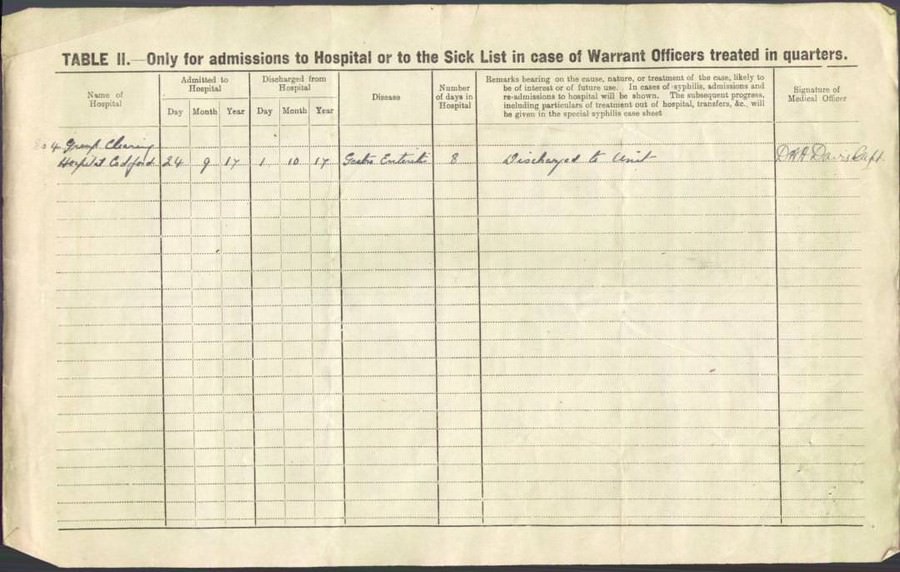 TABLE II.—Only for admissions to Hospital or to the Sick List in case of Warrant Officers treated in quarters.
Name of
Hospital
Admitted to
Hospital
Day Month Year
Discharged from
Hospital
Day Month Year
Disease
Number
of days in
Hospital
Remarks bearing on the cause, nature, or treatment of the case, likely to
be of interest or of future use. In cases of syphilis, admissions and
re-admissions to hospital will be shown. The subsequent progress,
including particulars of treatment out of hospital, transfers, &c., will
be given in the special syphilis case sheet
Signature of
Medical Officer
4 Group Clearing
Hospital Codford 24 9 17 1 10 17 Gastro Enteritis 8 Discharged to Unit Davis Capt.